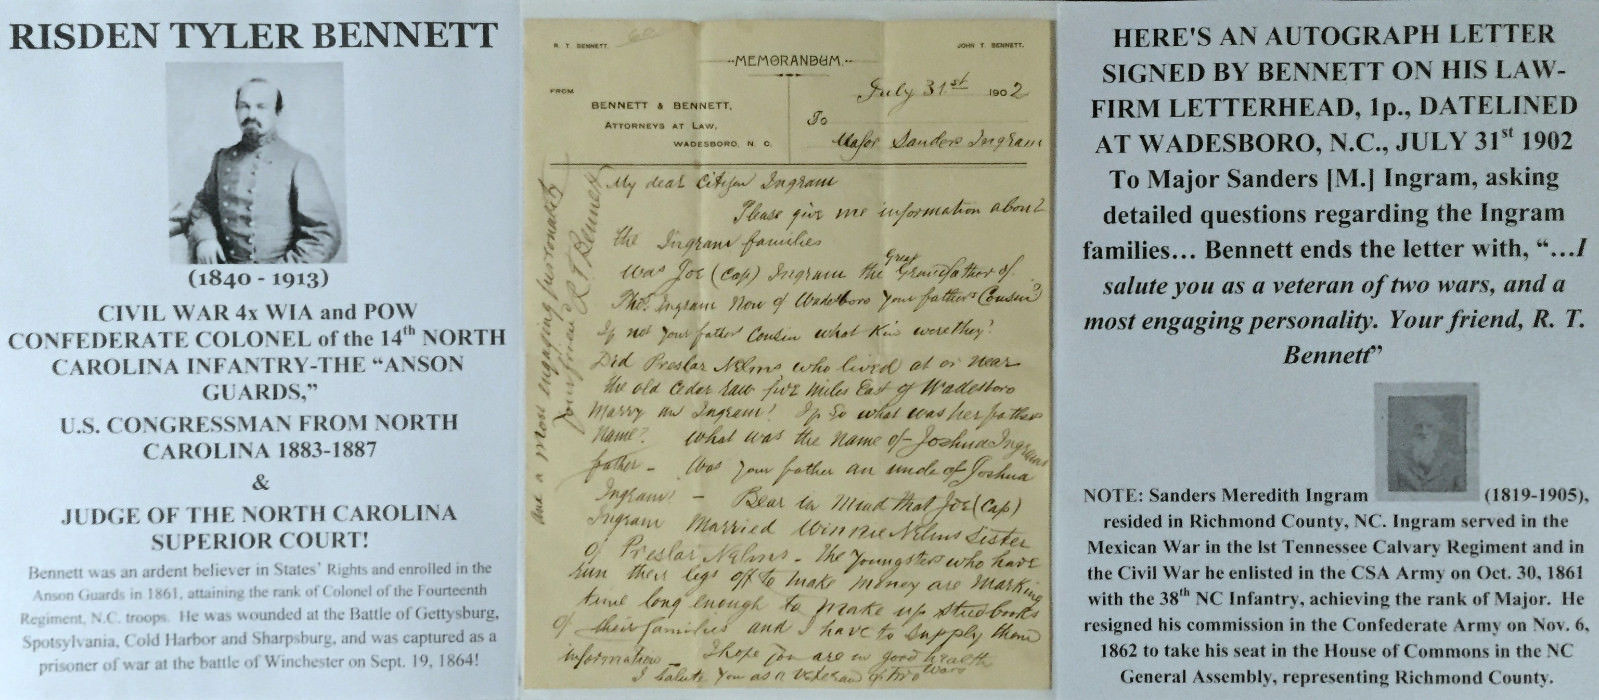 RISDEN TYLER BENNETT
(1840 - 1913)
CIVIL WAR 4x WIA and POW
CONFEDERATE COLONEL of the 14th NORTH
CAROLINA INFANTRY-THE “ANSON
GUARDS,”
U.S. CONGRESSMAN FROM NORTH
CAROLINA 1883-1887
&
JUDGE OF THE NORTH CAROLINA
SUPERIOR COURT!
Bennett was an ardent believer in States’ Rights and enrolled in the
Anson Guards in 1861, attaining the rank of Colonel of the Fourteenth
Regiment, N.C. troops. He was wounded at the Battle of Gettysburg,
Spotsylvania, Cold Harbor and Sharpsburg, and was captured as a
prisoner of war at the battle of Winchester on Sept. 19, 1864!
R. T. BENNETT.
JOHN T. BENNETT.
MEMORANDUM.
FROM
BENNETT & BENNETT,
ATTORNEYS AT LAW,
WADESBORO, N. C.
July 31st 1902
To
Major Sanders Ingram
My dear Citizen Ingram
Please give me information about
the Ingram families
was Joe (Cap) Ingram the Great Grandfather of
Thos. Ingram Now of Wadesboro your father's Cousin?
If not your father Cousin what Kin were they?
Did Preslar Nelms who lived at or near
the old Cedar five miles East of Wadesboro
Marry an Ingram? If so what was her father
Name? what was the name of Joshua Ingrams
father - Was your father an uncle of Joshua
Ingram? - Bear in Mind that Joe (Cap)
Ingram Married Winnie Nelms Sister
of Preslar Nelms - The Youngsters who have
run their legs off to make money are marking
time long enough to make up studbooks
of their families and I have to supply them
information - I hope you are in good health
I salute you as a veteran of two wars
and a most engaging personality
your friend R T Bennett
HERE'S AN AUTOGRAPH LETTER
SIGNED BY BENNETT ON HIS LAW-
FIRM LETTERHEAD, 1p., DATELINED
AT WADESBORO, N.C., JULY 31st 1902
To Major Sanders [M.] Ingram, asking
detailed questions regarding the Ingram
families… Bennett ends the letter with, “…I
salute you as a veteran of two wars, and a
most engaging personality. Your friend, R. T.
Bennett”
NOTE: Sanders Meredith Ingram (1819-1905),
resided in Richmond County, NC. Ingram served in the
Mexican War in the 1st Tennessee Calvary Regiment and in
the Civil War he enlisted in the CSA Army on Oct. 30, 1861
with the 38th NC Infantry, achieving the rank of Major. He
resigned his commission in the Confederate Army on Nov. 6,
1862 to take his seat in the House of Commons in the NC
General Assembly, representing Richmond County.